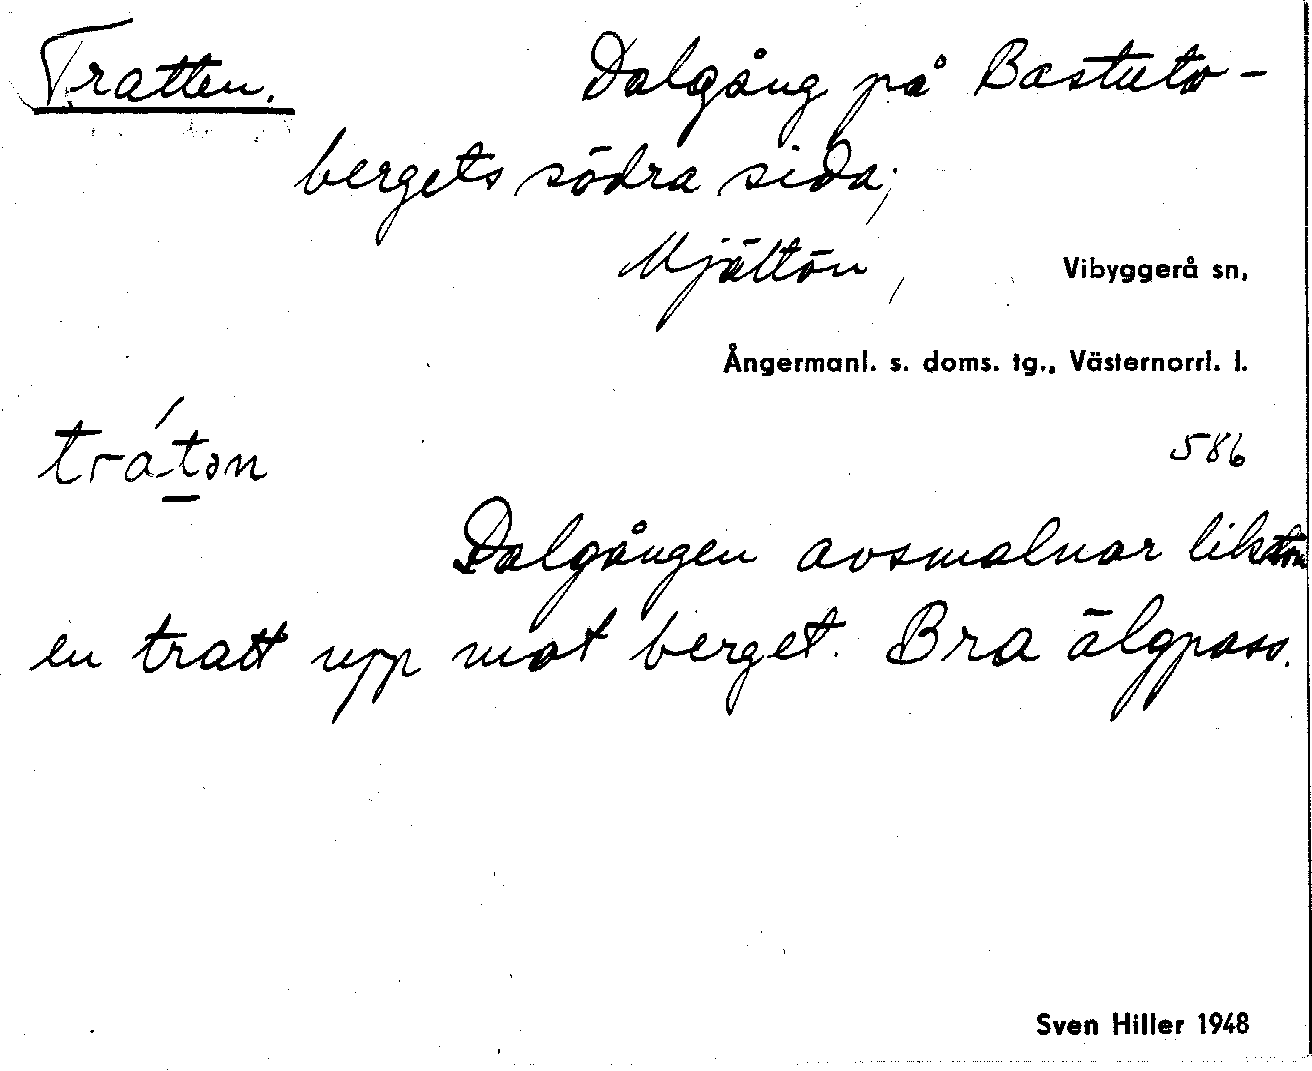 Tratten. Dalgång på Bastuto-
bergets södra sida;
Mjältön, Vibyggerå sn,
Ångermanl. s. doms. tg., Västernorrl. l.
trá̱tən 586
Dalgången avsmalnar liksom
en tratt upp mot berget. Bra älgpass.
Sven Hiller 1948